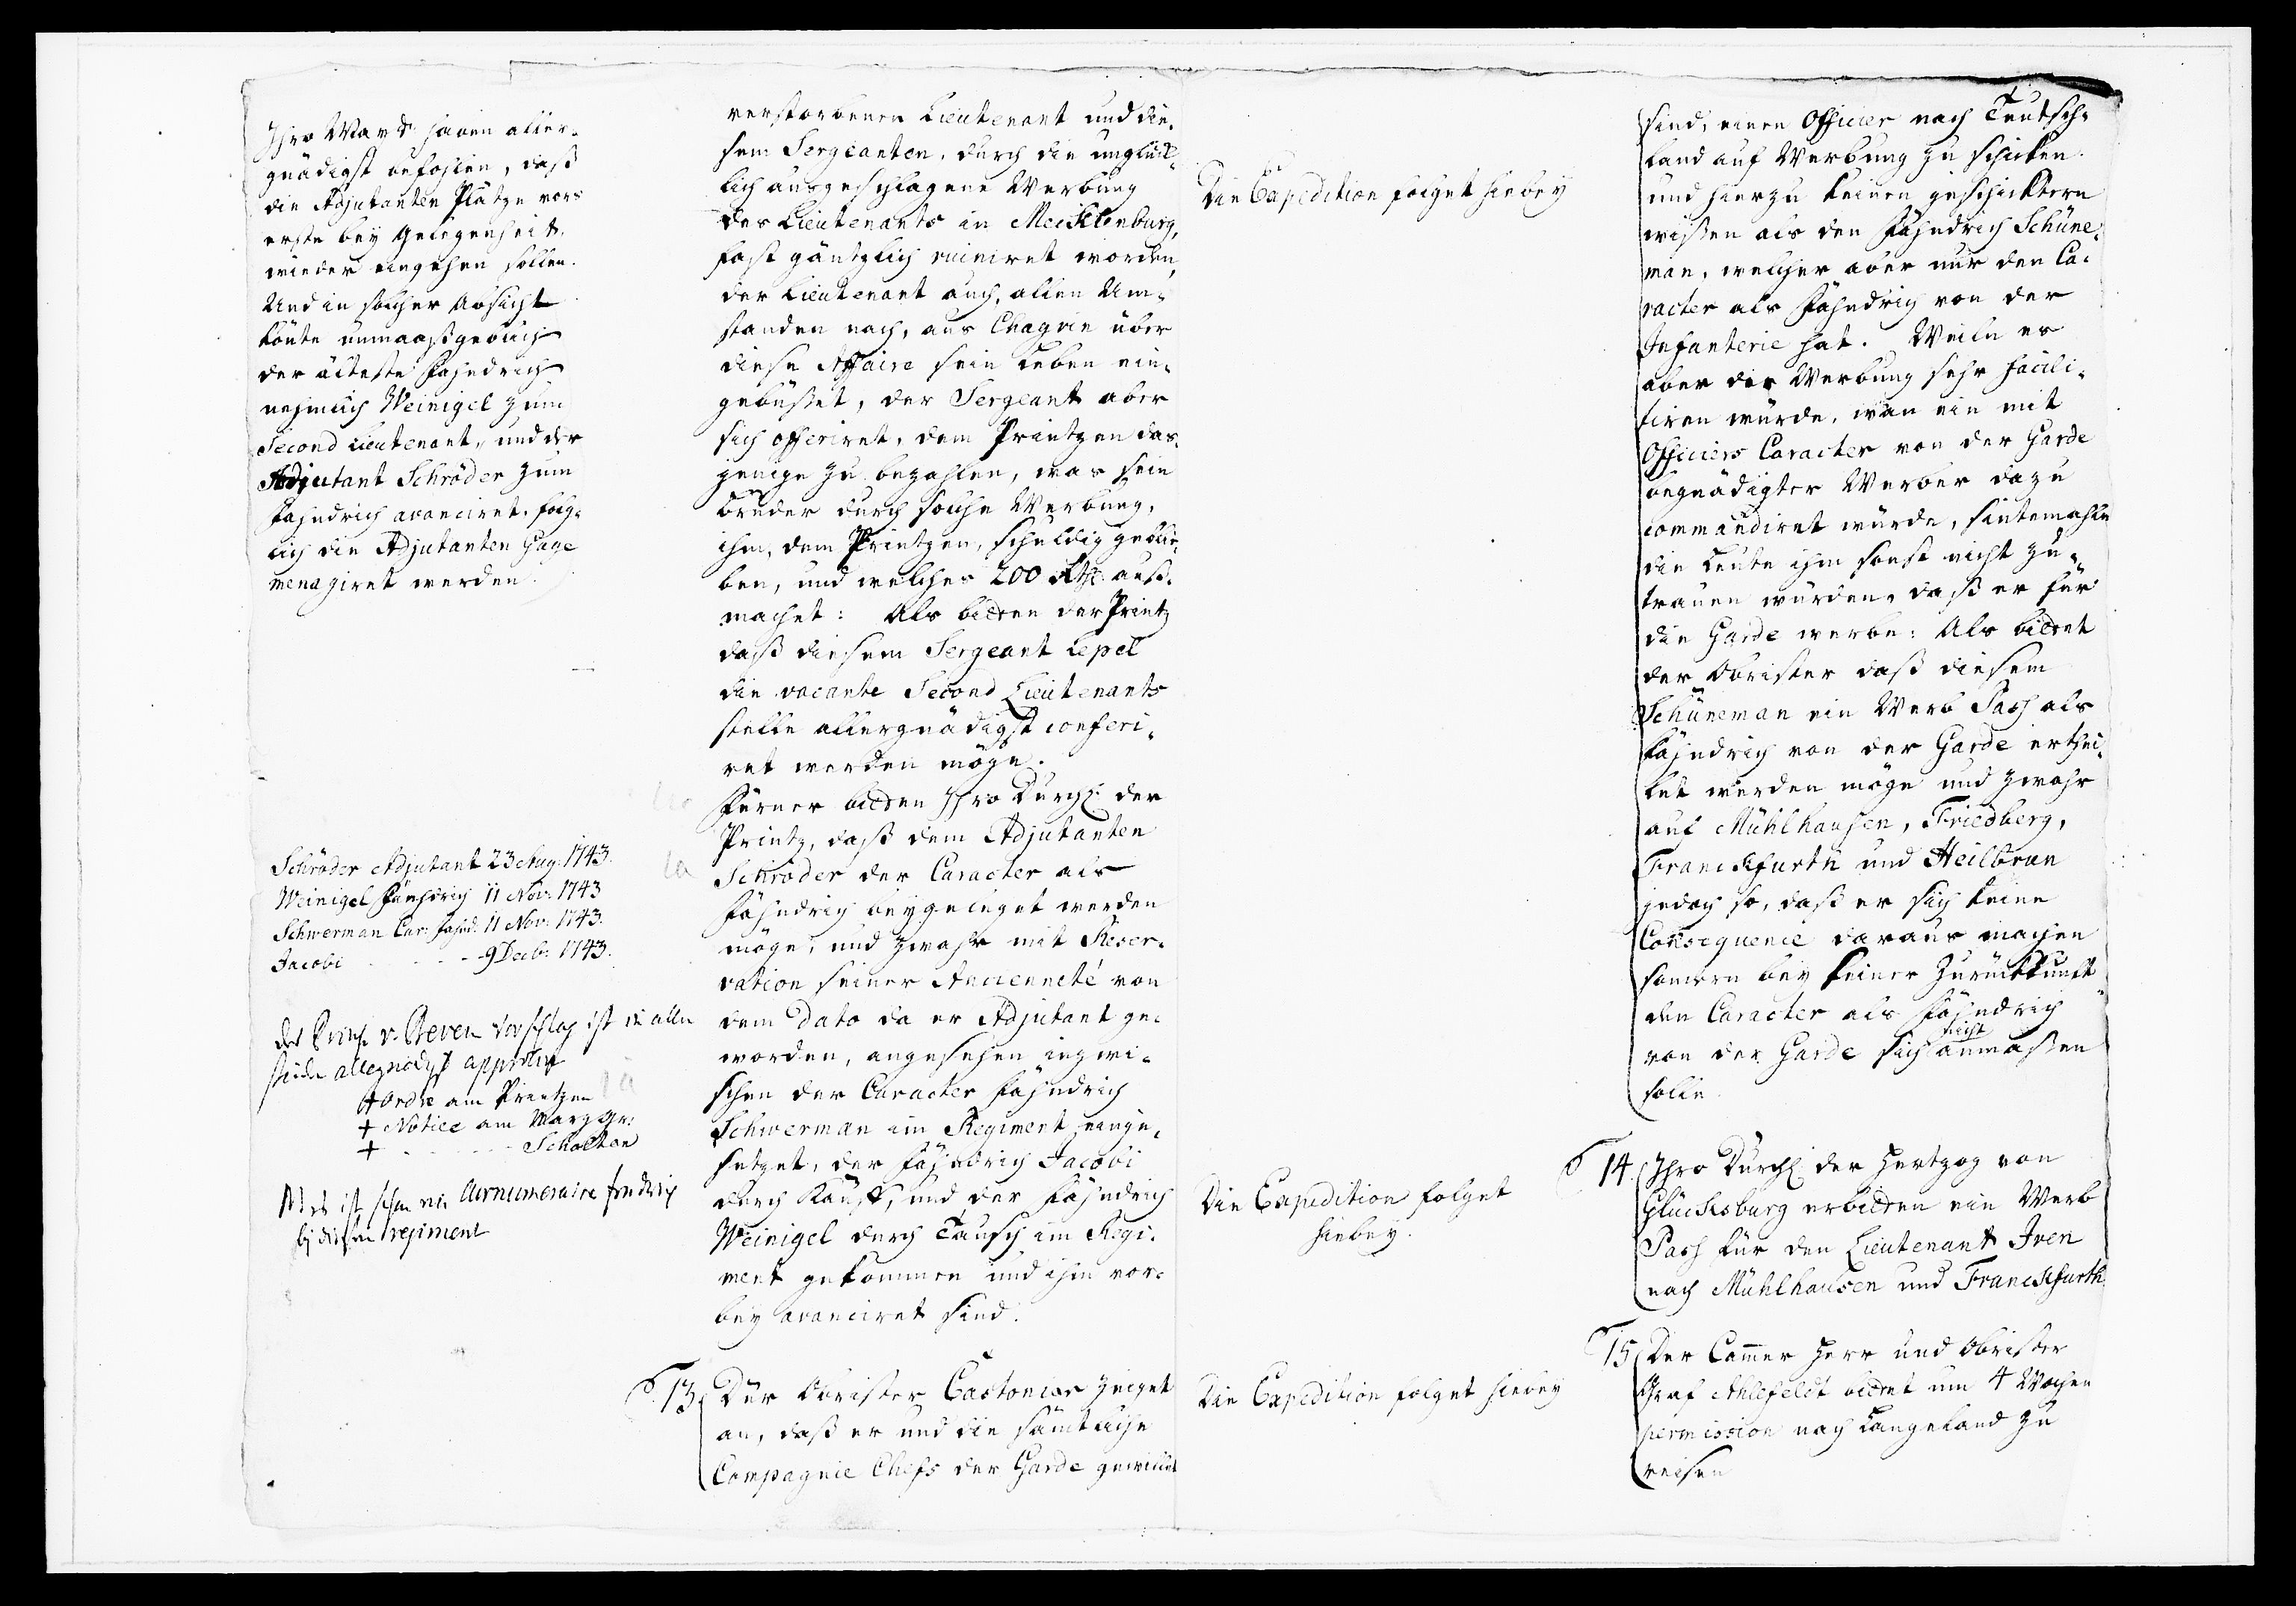 Ihro Mayst: haben aller-
gnädigst befohlen, daß
die Adjutanten Plätze vors
erste bey Gelegenheit,
wieder eingehen sollen.
Und in solcher Absicht
könte unmaaßgeblich
der älteste Fähndrich
nehmlich Weinigel zum
Second Lieutenant, und der
Adjutant Schröder zum
Fähndrich avanciret, folg-
lich die Adjutanten Gage
menagiret werden.
Schröder Adjutant 23 Aug: 1743.
Weinigel Fänhdrich 11 Nov: 1743
Schwerman Car: Fähnd: 11 Nov: 1743.
Jacobi - - - - 9 Decb: 1743.
Des Prinz v. Bevern Vorschlag ist in allen
allergnädigst
+ Ordre am Printzen
+ Notice am Margr:
+ - - - - Scholten
ist schon ein surnumeraire
bei diesem regiment
verstorbenen Lieutenant und die-
sem Sergeanten, durch die unglück-
lich ausgeschlagene Werbung
des Lieutenants in Mecklenburg,
fast gäntzlich ruiniret worden,
der Lieutenant auch, allen Um-
standen nach, aus Chagrin über
diese Affaire sein Leben ein-
gebüßet, der Sergeant aber
sich offeriret, dem Printzen das-
jenige zu bezahlen, was sein
Bruder durch solche Werbung,
ihm, dem Printzen, schuldig geblie-
ben, und welches 200 Rthr. auß-
machet: Als bitten der Printz
daß diesem Sergeant Lepel
die vacante Second Lieutenants
stelle allergnädigst conferi-
ret werden möge.
Ferner bitten Ihro Durchl: der
Printz, daß dem Adjutanten
Schröder der Caracter als
Fähndrich beygeleget werden
möge, und zwahr mit Reser-
vation seiner Ancienneté von
dem Dato da er Adjutant ge-
worden, angesehen inzwi-
schen der Caracter Fähndrich
Schwerman im Regiment einge-
setzet, der Fähndrich Jacobi
durch Kauff, und der Fähndrich
Weinigel durch Tausch im Regi-
ment gekommen und ihm vor-
bey avanciret sind.
13. Der Obrister Castonier zeiget
an, daß er und die sämtliche
Compagnie Chefs der Garde gewillet
Die Expedition folget hiebey
Die Expedition folget
hiebey.
Die Expedition folget hiebey
sind, einen Officier nach Teutsch-
land auf Werbung zu schicken.
und hierzu keinen geschicktern
wißen als den Fähndrich Schüne-
man, welcher aber nur den Ca-
racter als Fähndrich von der
Infanterie hat. Weile es
aber die Werbung sehr facili-
tiren würde, wan ein mit
Officiers Caracter von der Garde
begnädigter Werber dazu
commandiret würde, sintemahlen
die Leute ihm sonst nicht zu-
trauen würden, daß er für
die Garde werbe: Als bittet
der Obrister daß diesem
Schüneman ein Werb Pass als
Fähndrich von der Garde erthei-
let werden möge und zwahr
auf Mühlhausen, Friedberg,
Franckfurth und Heilbrun
jedoch so, daß er sich keine
Consequence daraus machen
sondern bey seiner Zurückkunft
den Caracter als Fähndrich
von der Garde sich nicht anmaßen
solle.
14. Ihro Durchl: der Hertzog von
Glücksburg erbitten ein Werb
Pass für den Lieutenant Iven
nach Mühlhausen und Franckfurth
15. Der Cammer Herr und Obrister
Graf Ahlefeldt bittet um 4 Wochen
permission nach Langeland zu
reisen